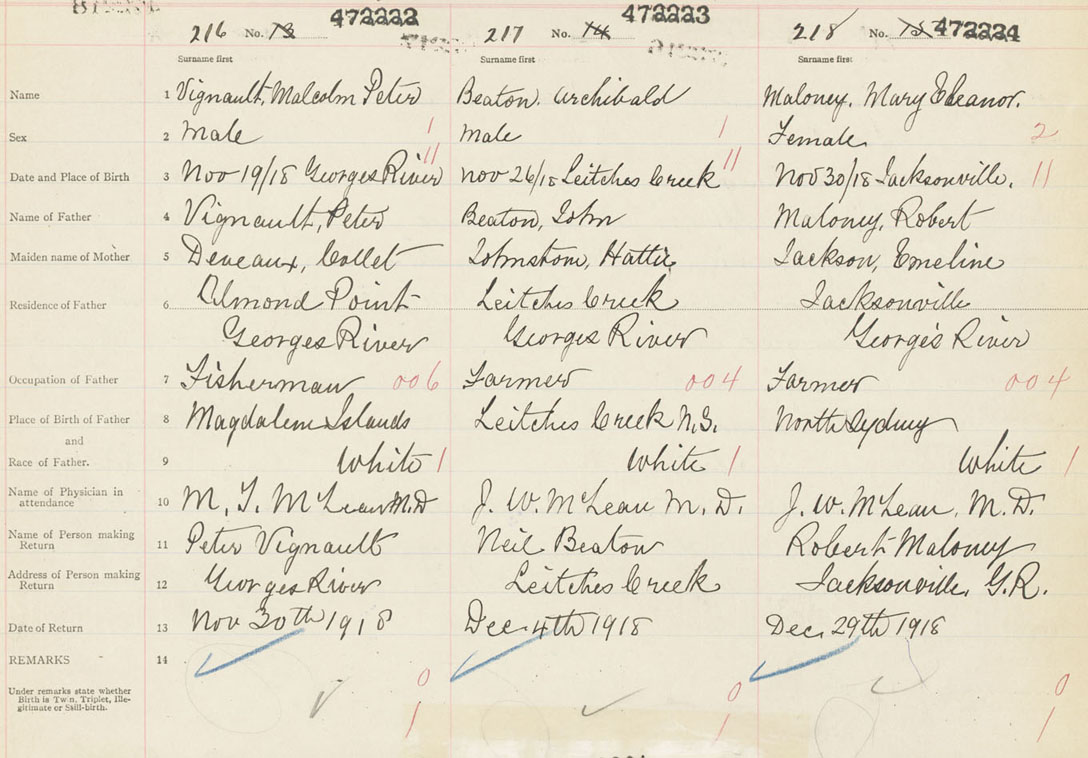 472222
472223
472224
216 No. 13
217 No. 14
218 No. 15
Surname first
Surname first
Surname first
Name 1 Vignault, Malcolm Peter
Beaton. Archibald
Maloney. Mary Eleanor.
Sex 2 Male 1
Male 1
Female 2
Date and Place of Birth 3 Nov 19/18 Georges River 11
Nov 26/18 Leitches Creek 11
Nov 30/18 Jacksonville. 11
Name of Father 4 Vignault, Peter
Beaton, John
Maloney, Robert
Maiden name of Mother 5 Deveaux, Collet
Johnstone, Hattie
Jackson, Emeline
Residence of Father 6 Almond Point
Georges River
Leitches Creek
Georges River
Jacksonville
Georges River
Occupation of Father 7 Fisherman 006
Farmer 004
Farmer 004
Place of Birth of Father 8 Magdalen Islands
Leitches Creek N.S.
North Sydney
and
Race of Father. 9 White 1
White 1
White 1
Name of Physician in
attendance 10 M. T. McLean M.D
J. W. McLean M. D.
J. W. McLean, M. D.
Name of Person making
Return 11 Peter Vignault
Neil Beaton
Robert Maloney
Address of Person making
Return 12 Georges River
Leitches Creek
Jacksonville, G.R.
Date of Return 13 Nov 30th 1918
Dec. 4th 1918
Dec. 29th 1918
REMARKS 14
Under remarks state whether
Birth is Twin, Triplet, Ille-
gitimate or Still-birth.
0
1
0
1
0
1